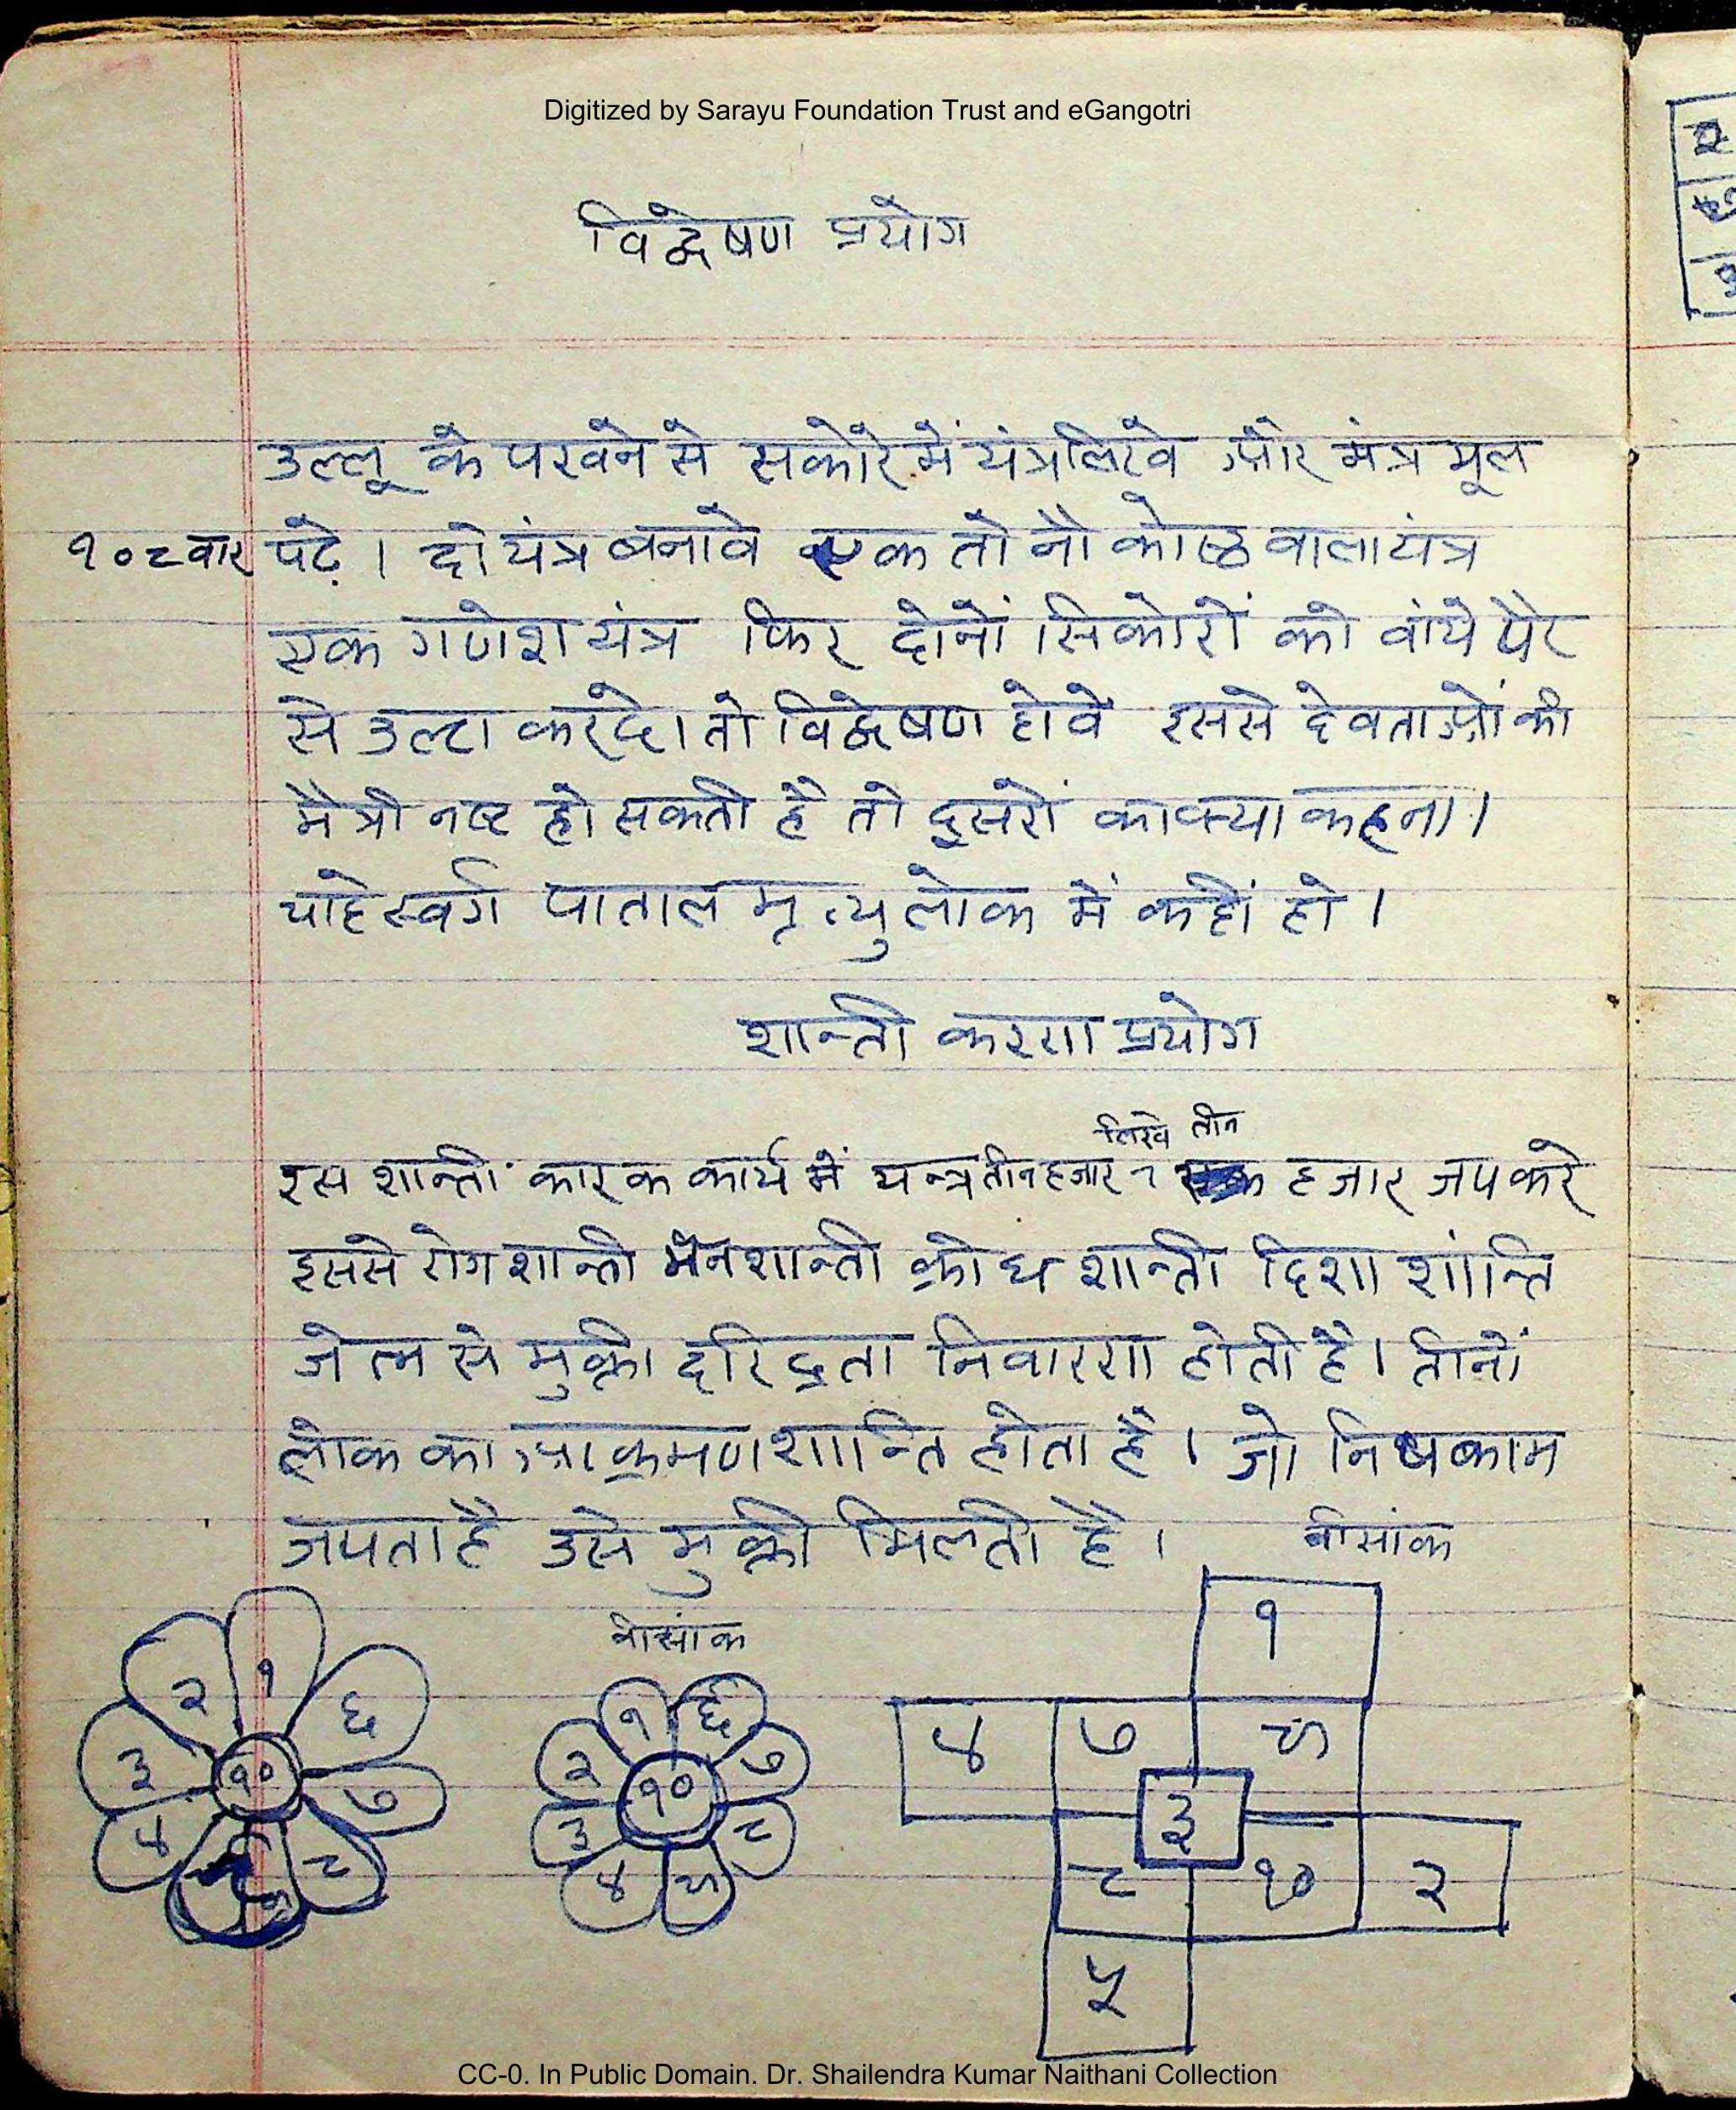 Digitized by Sarayu Foundation Trust and eGangotri
विद्वेषण प्रयोग
उल्लू के पखने से सकोरे में यंत्र लिखे और मंत्र मूल
१०८ वार पढ़े । दो यंत्र बनावे एक तो नौ कोष्ठ वाला यंत्र
एक गणेश यंत्र फिर दोनों सिकोरों को वांये पैर
से उल्टा करदे। तो विद्वेषण होवे इससे देवताओं की
मैत्री नष्ट हो सकती है तो दुसरों का क्या कहना।
चाहे स्वर्ग पाताल मृत्यु लोक में कहीं हो ।
शान्ती करण प्रयोग
लिखे तीन
इस शान्ती कारक कार्य में यन्त्र तीन हजार हजार जप करे
इससे रोग शान्ती मन शान्ती क्रोध शान्ती दिशा शांन्ति
से मुक्ती दरिद्रता निवारण होती है। तीनों
लोक का आक्रमण शान्ति होता है । जो निष्काम
जपता है उसे मुक्ती मिलती है ।
वीसांक
वीसांक
१
२ १ ६
३ १० ७
४ ८
१ ६
२ १० ७
३ ८
४ ५
४ ७ ९
३
८ १० २
५
CC-0. In Public Domain. Dr. Shailendra Kumar Naithani Collection